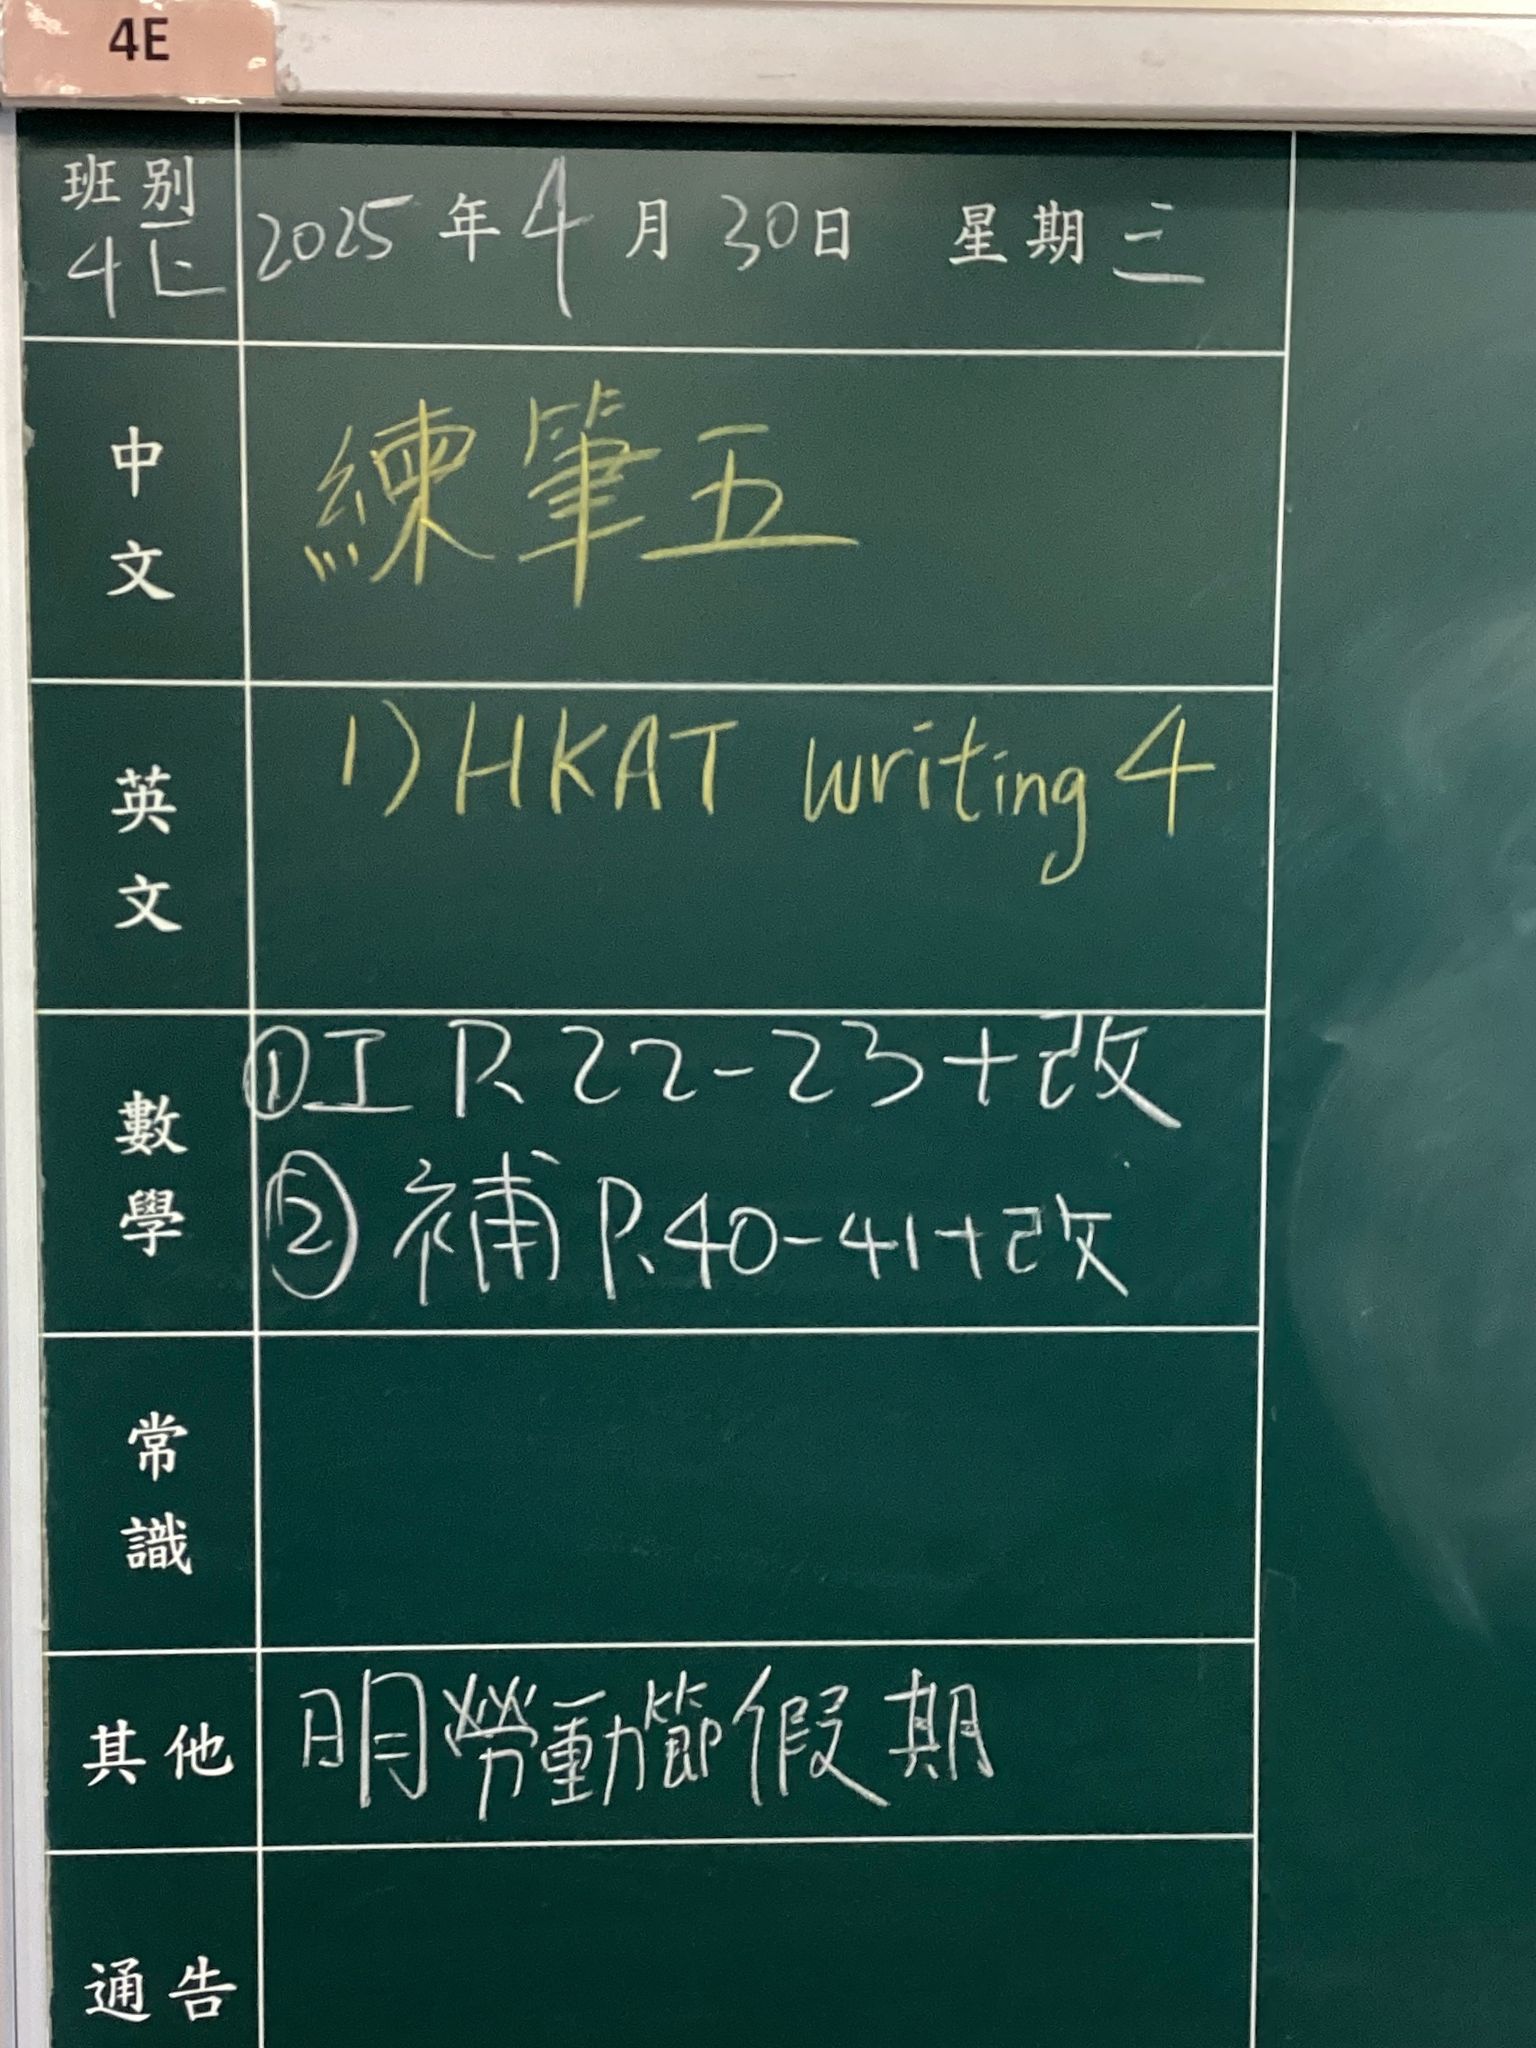 4E
班別
4E
2025年4月30日 星期三
中文
練筆五
英文
1) HKAT writing 4
數學
①工 P.22-23+改
②補 P.40-41+改
常識
其他
明勞動節假期
通告